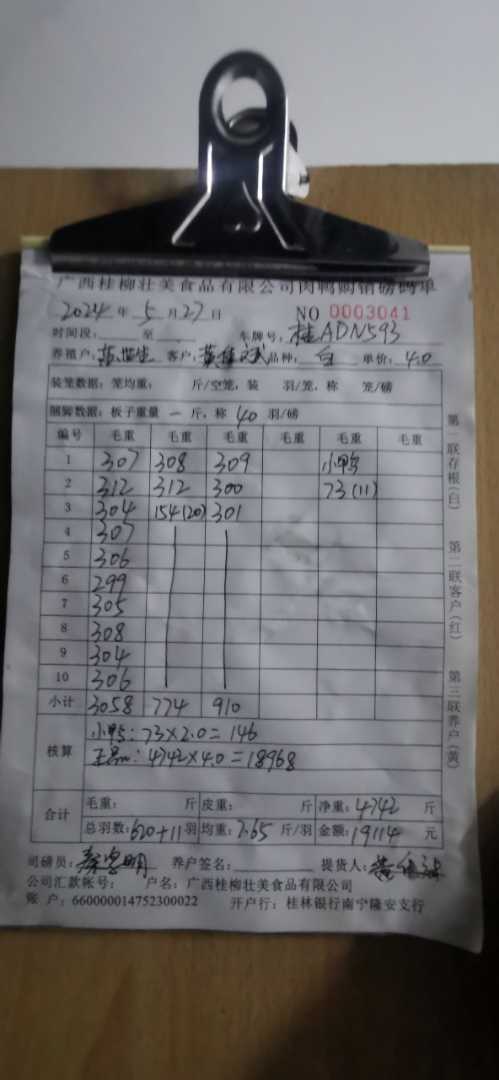 广西桂柳壮美食品有限公司肉鸭购销磅码单
2024年5月27日 NO 0003041
时间段: 至 车牌号: 桂ADN593
养殖户: 客户: 黄 品种: 白 单价: 4.0
装笼数据: 笼均重: 斤/空笼, 装 羽/笼, 称 笼/磅
捆脚数据: 板子重量 一 斤, 称 40 羽/磅
编号 毛重 毛重 毛重 毛重 毛重 毛重
1 307 308 309 小鸭
2 312 312 300 73(11)
3 304 154(20) 301
4 307
5 306
6 299
7 305
8 308
9 304
10 306
小计 3058 774 910
核算
小鸭: 73×2.0=146
正品: 4742×4.0=18968
合计
毛重: 斤 皮重: 斤 净重: 4742 斤
总羽数: 620+11 羽 均重: 7.65 斤/羽 金额: 19114 元
司磅员: 明 养户签名: 提货人: 黄
公司汇款帐号: 户名: 广西桂柳壮美食品有限公司
账 户: 660000014752300022 开户行: 桂林银行南宁隆安支行
第一联存根(白)
第二联客户(红)
第三联养户(黄)